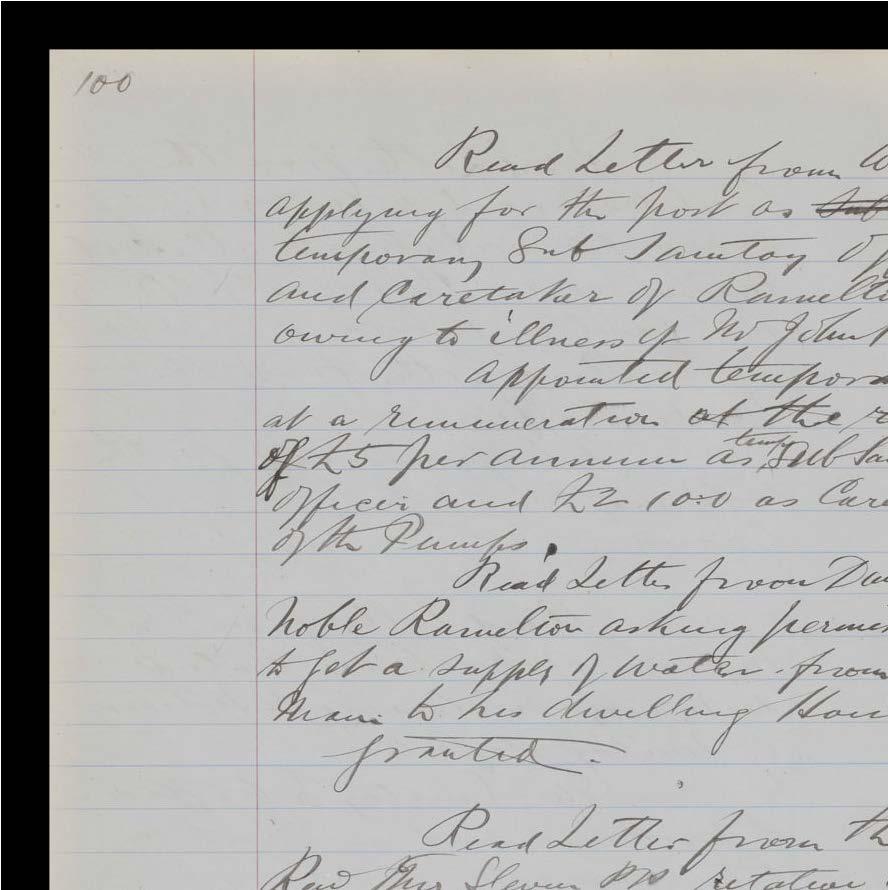 100
Read Letter from
applying for the post as Sub
temporary Sub Sanitary
and Caretaker of Ramelto
owing to illness of Mr John
Appointed tempora
at a remuneration at the r
of £5 per annum as temp Sub Sa
officer and £2 10:0 as Care
of the Pumps.
Read Letter from
Noble Ramelton asking permis
to get a supply of water from
Main to his dwelling Hou
granted.
Read Letter from th
Rev Thos Slevin PP